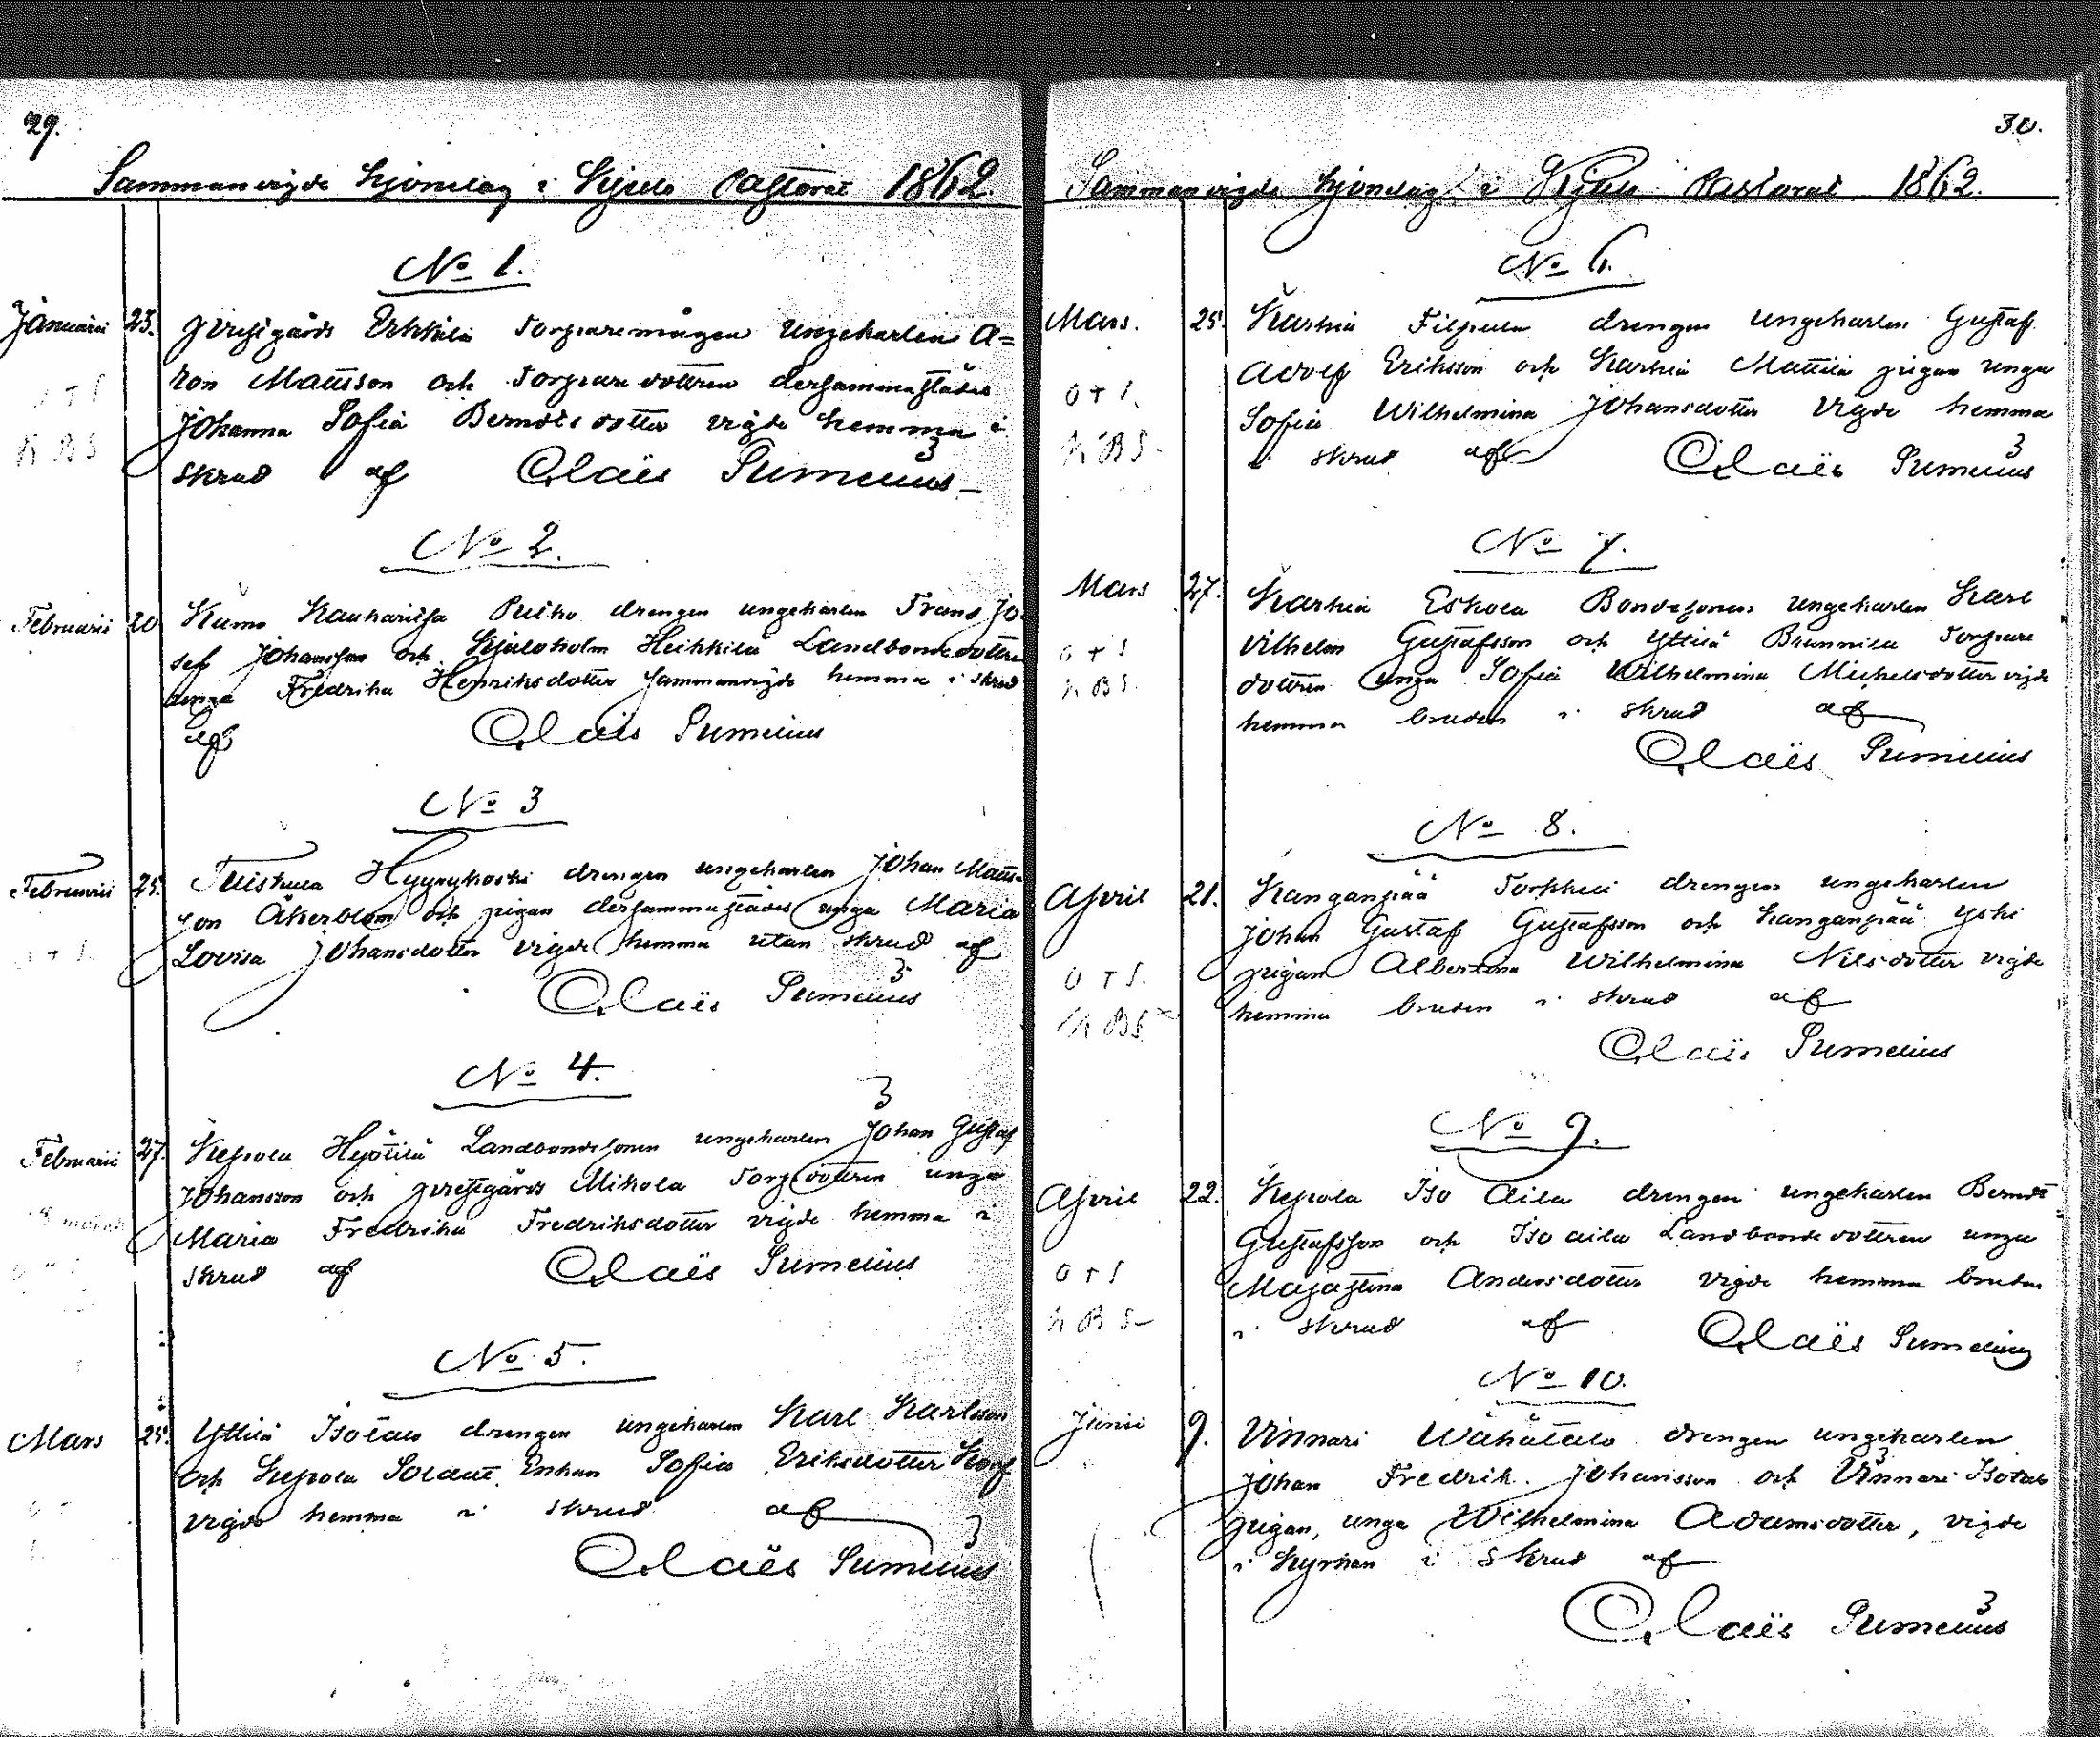 29.
Sammanvigde hjonelag i Kjulo Pastorat 1862.
No 1.
Januarii 23. Prestgårds Erkkilä Torparemågen ungekarlen A=
ron Mattsson och Torpare dottren dersammastädes
Johanna Sofia Berndtsdotter vigde hemma i
skrud af Claës Sumelius
No 2.
Februarii 20 Kumo Kauharitsa Puiho drengen ungekarlen Frans Jo-
sef Johansson och Kjuloholm Heikkilä Landbondedottren
unga Fredrika Henriksdotter sammanvigde hemma i skrud
af Claës Sumelius
No 3
Februarii 25. Tuiskula Hyyrykoski drengen ungekarlen Johan Matts-
son Åkerblom och pigan dersammastädes unga Maria
Lovisa Johansdotter vigde hemma utan skrud af
Claës Sumelius
No 4.
Februarii 27. Kepola Hyötilä Landbondesonen ungekarlen Johan Gustaf
Johansson och prestgårds Mikola Torp dottren unga
Maria Fredrika Fredriksdotter vigde hemma i
skrud af Claës Sumelius
No 5.
Mars 25. Yttilä Isotalo drengen ungekarlen Karl Karlsson
och Kepola Soldat Enkan Sofia Eriksdotter Korf
vigde hemma i skrud af
Claës Sumelius
30.
Sammanvigde hjonelag i Kjulo Pastorat 1862.
No 6.
Mars. 25. Karhia Filpula drengen ungekarlen Gustaf
Adolf Eriksson och Karhia Mattila pigan unga
O + S. Sofia Wilhelmina Johansdotter vigde hemma
h B S. i skrud af Claës Sumelius
No 7.
Mars 27. Karhia Eskola Bondesonen ungekarlen Karl
Vilhelm Gustafsson och Yttilä Brunnila Torpare
o + S dottren unga Sofia Wilhelmina Michelsdotter vigde
h B S. hemma bruden i skrud af
Claës Sumelius
No 8.
April 21. Kanganpää Torkheli drengen ungekarlen
Johan Gustaf Gustafsson och Kanganpää Yski
O + S. pigan Albertina Wilhelmina Nilsdotter vigde
h B S hemma bruden i skrud af
Claës Sumelius
No 9.
April 22. Kepola Iso Aila drengen ungekarlen Berndt
Gustafsson och Iso aila Landbonde dottren unga
O + S Majastina Andersdotter vigde hemma bruden
h B S i skrud af Claës Sumelius
No 10.
Junii 9. Vinnari Wähätalo drengen ungekarlen
Johan Fredrik Johansson och Vinnari Isotalo
pigan, unga Wilhelmina Adamsdotter, vigde
i Kyrkan i skrud af
Claës Sumelius